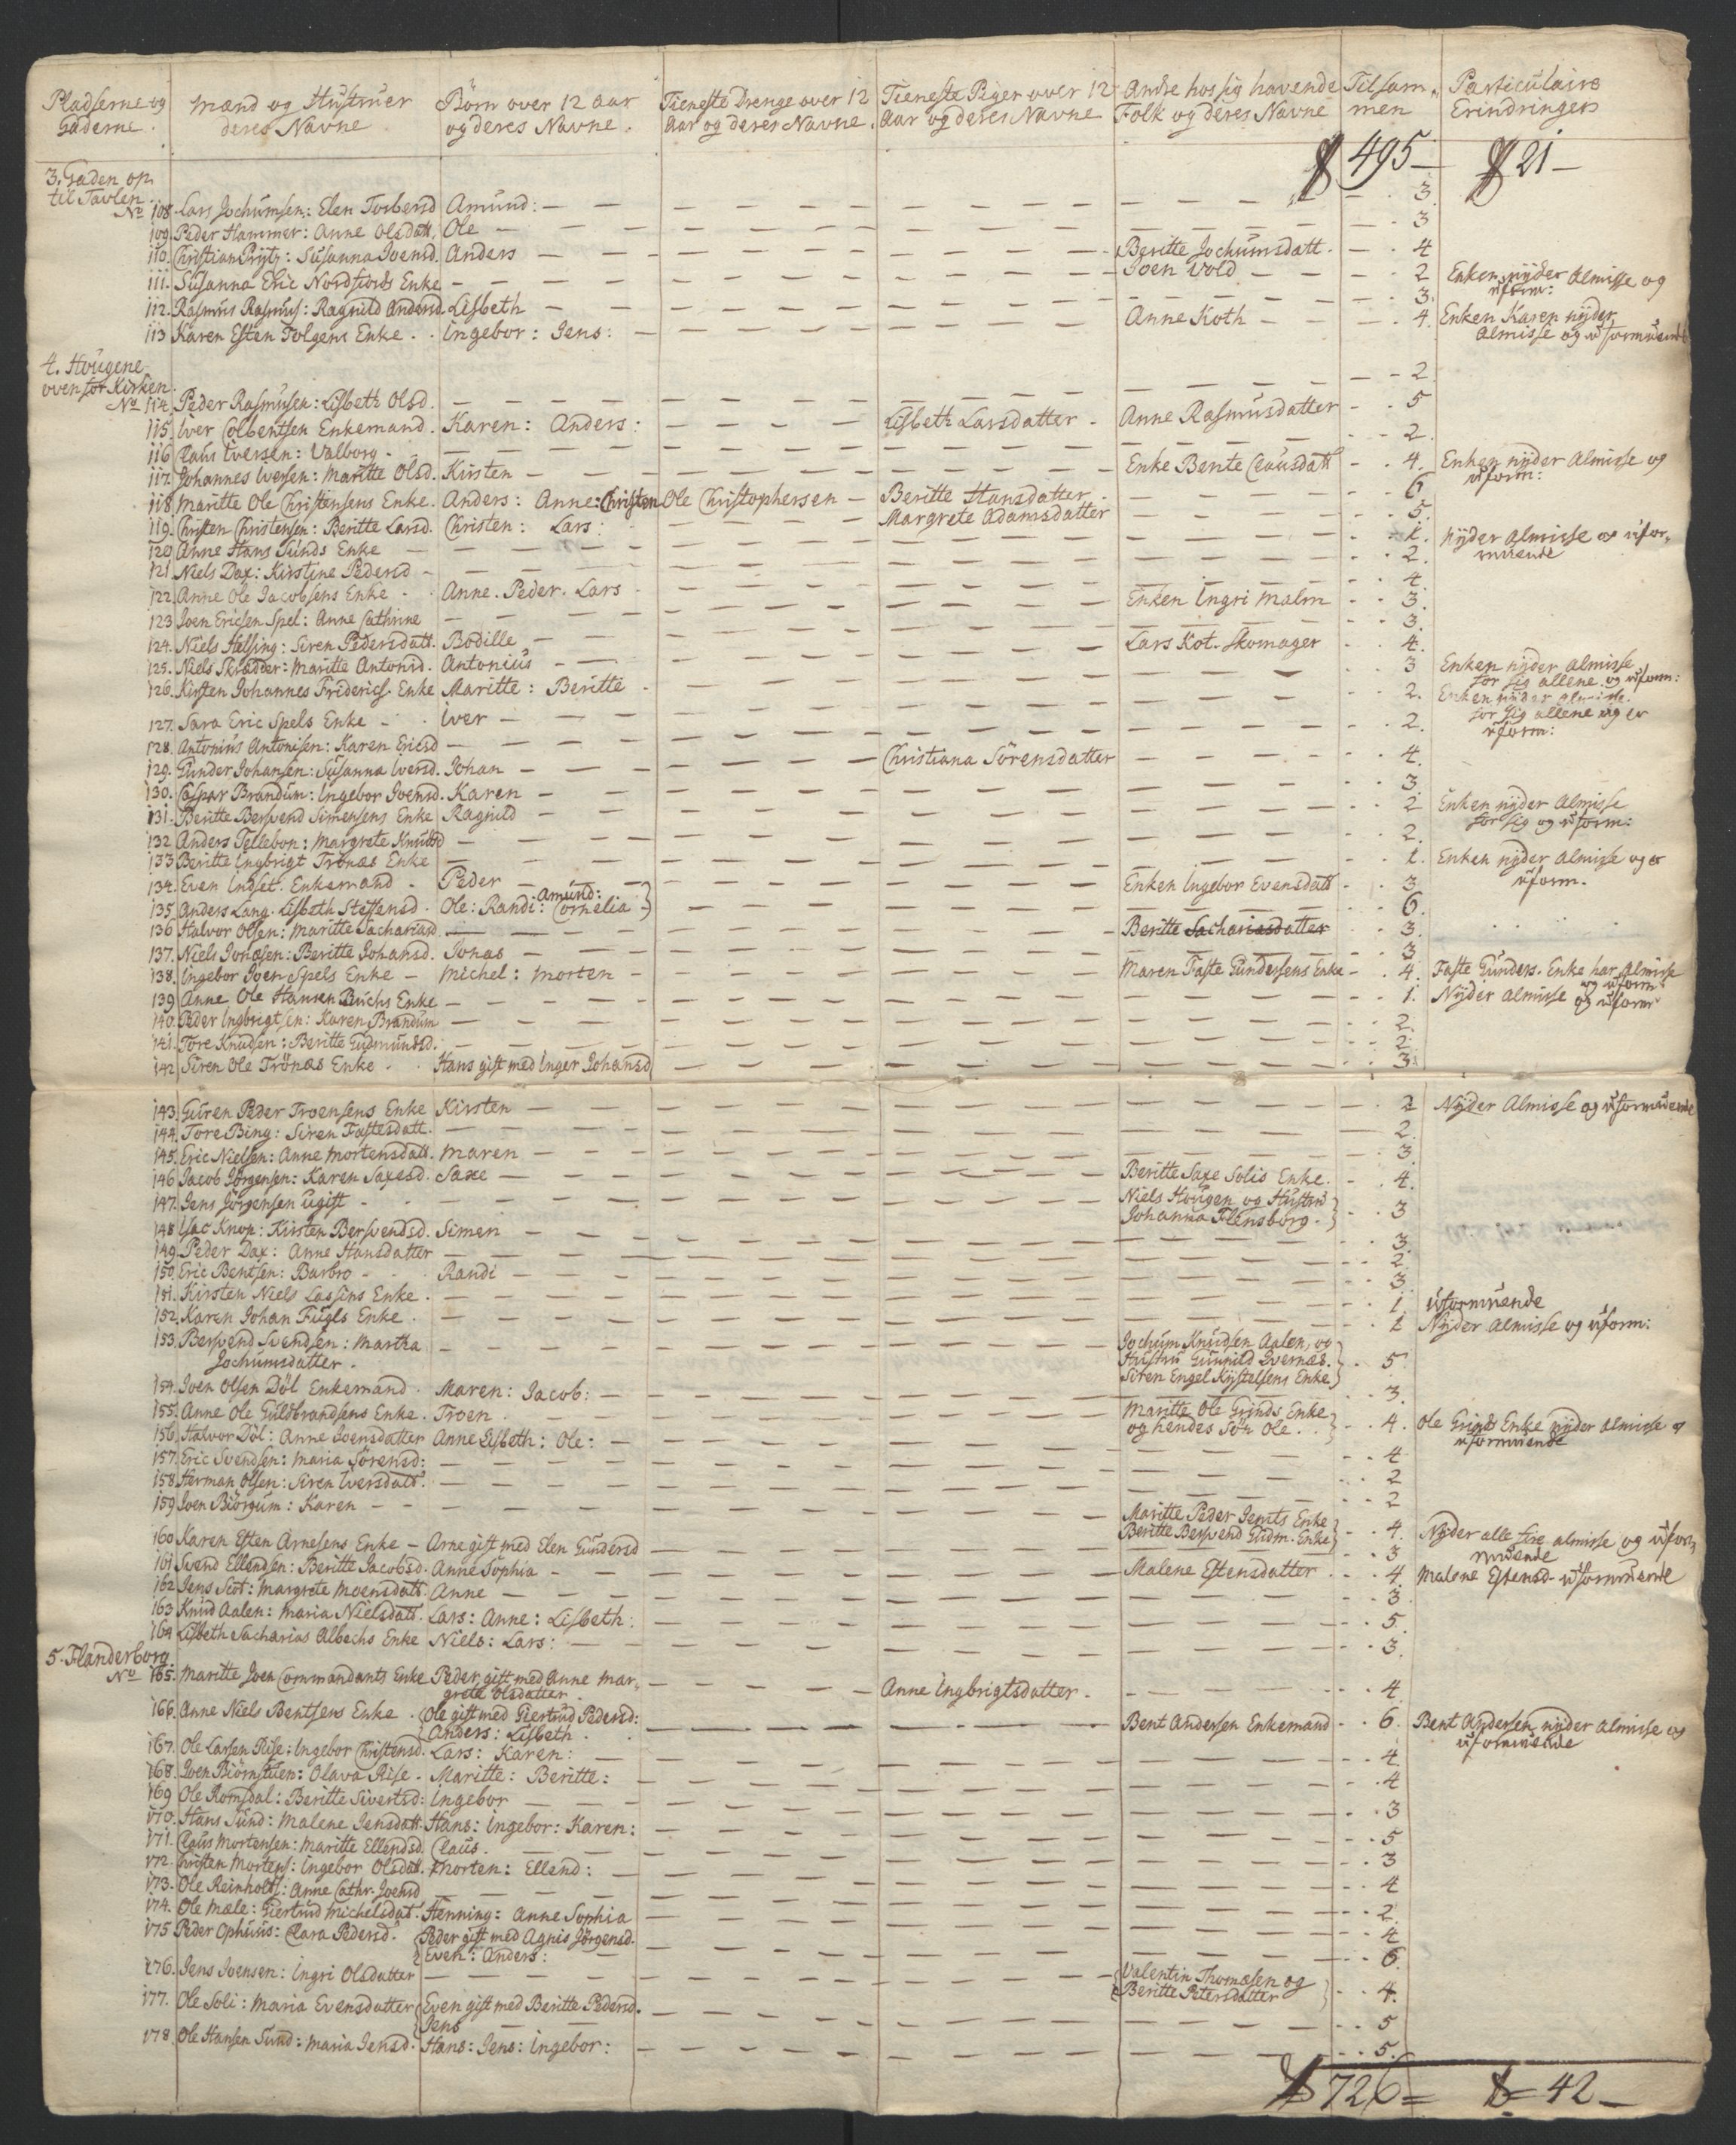 Pladserne og Gaderne. | Mænd og Hustruer deres Navne | Börn over 12 aar og deres Navne. | Tieneste Drenge over 12 Aar og deres Navne. | Tieneste Piger over 12 Aar og deres Navne | Andre hos sig havende Folk og deres Navne | Tilsammen | Particulaire Erindringer
495 — 21 —
3. Gaden op til Tavlen
No 108. Lars Jochumsen: Elen Torbersd Amund: 3.
109. Peder Hammer: Anne Olsdatt. Ole 3
110. Christian Prÿtz: Susanna Joensd. Anders Beritte Jochumsdatt. 4
111. Susanna Eric Nordfiords Enke Joen Vold 2 Enken nÿder Almisse og uform:
112. Rasmus Rasmus: Ragnild Andersd. Lisbeth 3.
113 Karen Esten Folgens Enke. Ingebor: Jens: Anne Koth 4. Enken Karen nÿder Almisse og uformuende
4. Hougene oven for Kirken.
No 114. Peder Rasmusen: Lisbeth Olsd. 2.
115. Iver Colbentsen Enkemand. Karen: Anders: Lisbeth Larsdatter. Anne Rasmusdatter 5
116 Claus Iversen: Valborg 2.
117. Johannes Iversen: Maritte Olsd. Kirsten Enke Bente Clausdatt 4. Enken nÿder Almisse og uform:
118. Maritte Ole Christensens Enke. Anders: Anne: Christen Ole Christophersen Beritte Hansdatter 6
119. Christen Christensen: Beritte Larsd. Christen: Lars: Margrete Adamsdatter 5.
120 Anne Hans Sunds Enke 1. nÿder Almisse og uformuende
121. Niels Dax: Kirstine Pedersd 2.
122. Anne Ole Jacobsens Enke Anne. Peder. Lars 4.
123 Joen Ericsen Spel: Anne Cathrine Enken Ingri Malm 3.
124. Niels Helsing: Siren Pedersdatt. Bodille 3.
125. Niels Skrædder: Maritte Antonsd. Antonius Lars Kot. Skomager 4.
126. Kirsten Johannes Friderics. Enke Maritte: Beritte 3 Enken nÿder Almisse for sig allene og uform:
127. Sara Eric Spels Enke Iver 2. Enken nÿder Almisse. for sig allene og er uform:
128. Antonius Antonisen: Karen Ericsd 2.
129. Gunder Johansen: Susanna Iversd. Johan Christiana Sörensdatter 4.
130. Caspar Brandum: Ingebor Joensd. Karen 3.
131. Beritte Bersvend Simensens Enke Ragnild 2 Enken nÿder Almisse for sig og uform:
132 Anders Tellebon: Margrete Knudsd 2.
133 Beritte Ingbrigt Trönæs Enke 1. Enken nÿder Almisse og er uform.
134. Even Indset. Enkemand Peder Enken Ingebor Evensdatt 3
135. Anders Lang. Lisbeth Steffensd. Ole: Randi: Amund: Cornelia 6.
136 Halvor Olsen: Maritte Sachariasd Beritte Sachariasdatter 3.
137. Niels Jonæsen: Beritte Johansd. Jonas 3
138. Ingebor Joen Spels Enke Michel: Morten Maren Faste Gundersens Enke 4. Faste Gunders. Enke har Almisse og uform
139 Anne Ole Hansen Buchs Enke 1. Nÿder Almisse og uform
140. Peder Ingbrigtsen: Karen Brandum 2.
141. Tore Knudsen: Beritte Gudmundsd. 2.
142 Siren Ole Trönæs Enke Hans gift med Inger Johansd 3.
143. Guren Peder Troensens Enke Kirsten 2 Nÿder Almisse og uformuende
144. Tore Bing: Siren Fastesdatt. 2.
145. Eric Nielsen: Anne Mortensdatt. Maren 3.
146 Jacob Jörgensen: Karen Saxesd. Saxe Beritte Saxe Solis Enke. 4.
147. Jens Jörgensen ugift Niels Hougen og Hustru Johanna Flensborg. 3
148 Isac Knop: Kirsten Bersvendsd. Simen 3.
149. Peder Dax: Anne Hansdatter 2
150. Eric Bentsen: Barbro Randi 3.
151. Kirsten Niels Lassens Enke 1. uformuende
152. Karen Johan Fugls Enke. 1 Nÿder Almisse og uform:
153. Bersvend Svendsen: Martha Jochumsdatter. Jochum Knudsen Aalen, og Hustru Gunnild Ivernæs. Siren Engel Kystelsens Enke 5
154. Joen Olsen Döl Enkemand. Maren: Jacob: 3.
155. Anne Ole Guldbrandsens Enke. Troen Maritte Ole Grinds Enke og hendes Sön Ole. 4. Ole Grinds Enke nÿder Almisse og uformuende
156. Halvor Döl: Anne Joensdatter Anne Lisbeth: Ole: 4
157. Eric Svendsen: Maria Sörensd: 2
158. Herman Olsen: Siren Iversdatt. 2
159 Joen Biörgum: Karen Maritte Peder Jemts Enke
160 Karen Esten Arnesens Enke Arne gift med Elen Gundersd Beritte Bersvend Gudm. Enke 4. Nÿder alle fire almisse og uformuende
161 Svend Ellendsen: Beritte Jacobsd. Anne Sophia 3
162 Jens Scot: Margrete Moensdatt Anne Malene Estensdatter 4 Malene Estensd. uformuende
163 Knud Aalen: Maria Nielsdatt. Lars: Anne: Lisbeth: 3. 5.
164 Lisbeth Sacharias Albechs Enke Niels: Lars: 3.
5. Flanderborg
No 165. Maritte Joen Commendants Enke Peder gift med Anne Margrete Olsdatter. Anne Ingbrigtsdatter. 4.
166. Anne Niels Bentsens Enke. Ole gift med Giertrud Pedersd: Anders: Lisbeth Bent Andersen Enkemand 6. Bent Andersen nÿder Almisse og uformuende
167. Ole Larsen Rise: Ingebor Christensd. Lars: Karen: 4.
168. Joen Biörnstuen: Olava Rise. Maritte: Beritte: 4
169 Ole Romsdal: Beritte Sivertsd: Ingebor 3
170. Hans Sund: Malene Jensdatt. Hans: Ingebor: Karen: 5
171. Claus Mortensen: Maritte Ellendsd. Claus. 3
172. Christen Mortens: Ingebor Olsdatt. Morten: Ellend: 4
173. Ole Reinholts: Anne Cathr. Joensd 2.
174. Ole Mæle: Giertrud Michelsdat. Henning: Anne Sophia 4
175 Peder Ophuus: Clara Pedersd. Peder gift med Agnis Jörgensd. Even: Anders: 6.
176. Jens Joensen: Ingri Olsdatter Valentin Thomæsen og Beritte Petersdatter 4.
177. Ole Soli: Maria Evensdatter Even gift med Beritte Pedersd. Jens 5
178. Ole Hansen Sund: Maria Jensd. Hans: Jens: Ingebor: 5.
726 = 42 —